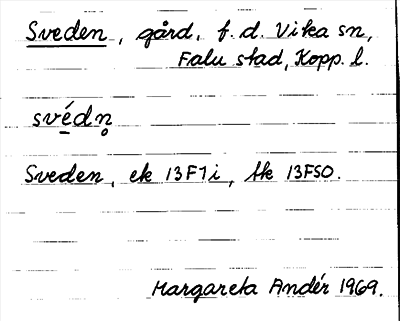 Sveden, gård, f. d. Vika sn,
Falu stad, Kopp. l.
svédn̥
Sveden, ek 13F7i, tk 13FSO.
Margareta Andér 1969.